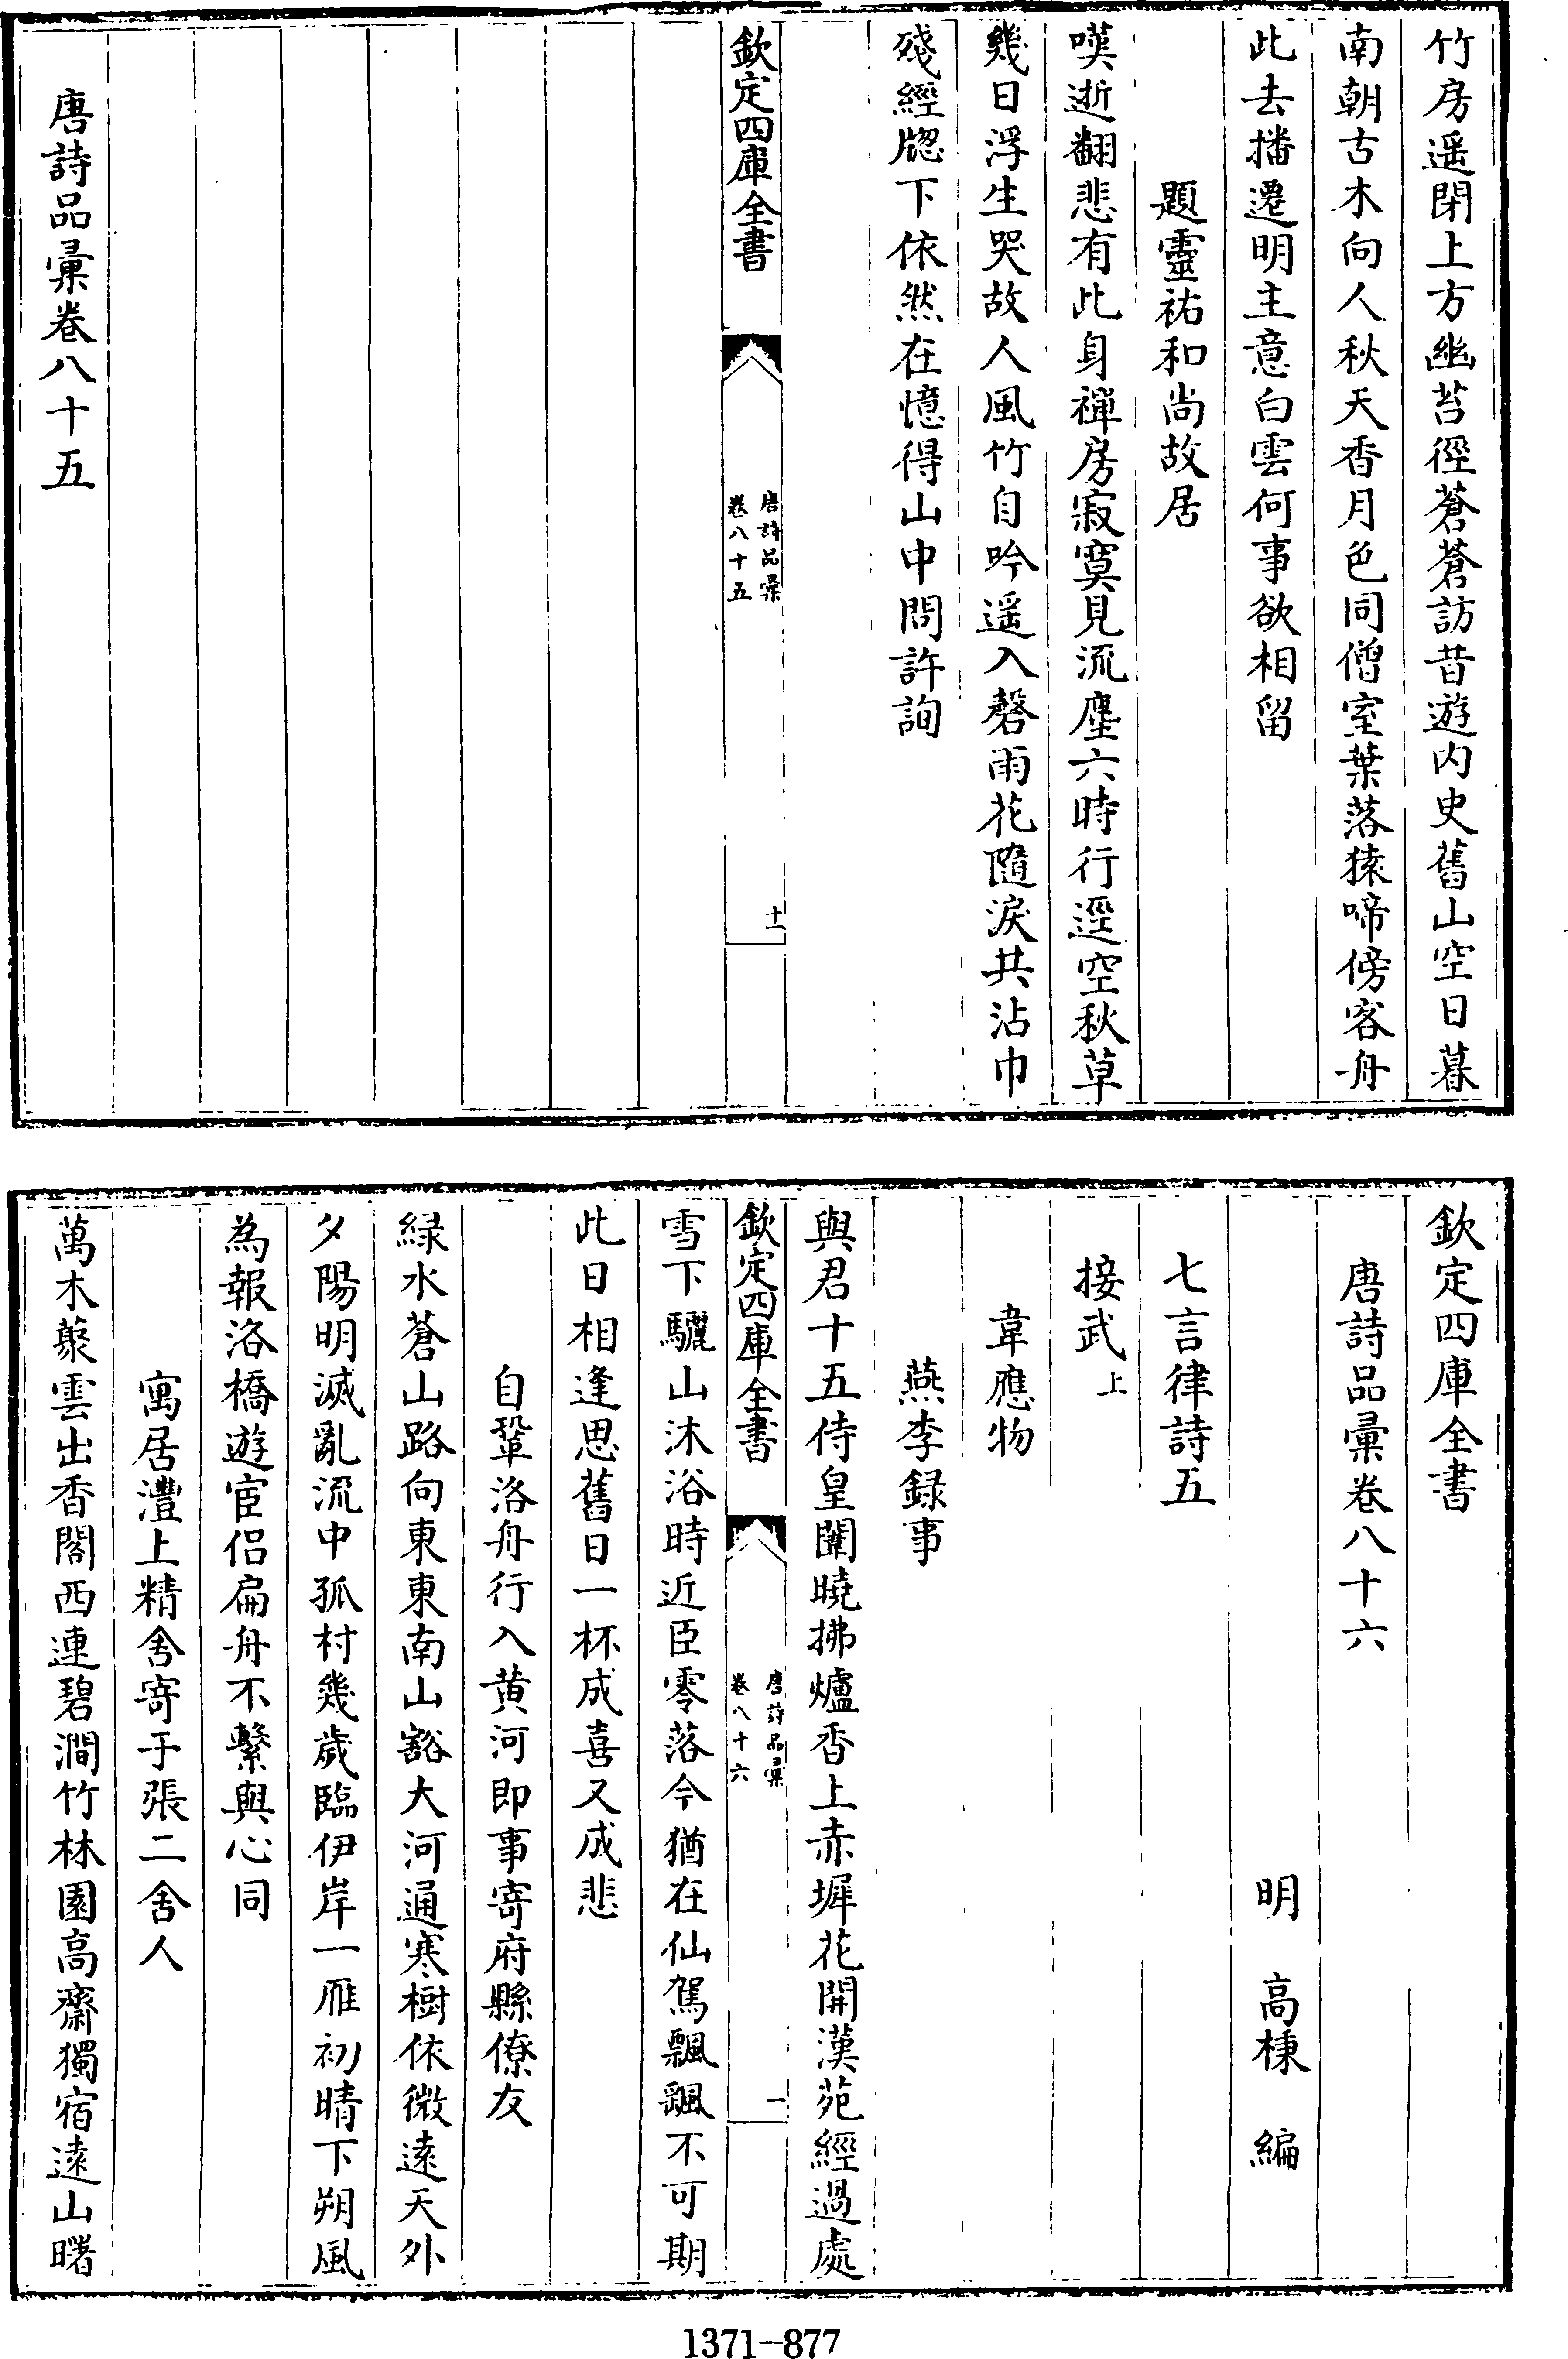 竹房遥閉上方幽苔徑蒼蒼訪昔遊内史舊山空日暮
南朝古木向人秋天香月色同僧室葉落猿啼傍客舟
此去播遷明主意白雲何事欲相留
題靈祐和尚故居
嘆逝翻悲有此身禪房寂寞見流塵六時行逕空秋草
幾日浮生哭故人風竹自吟遥入磬雨花隨淚共沾巾
殘經牎下依然在憶得山中問許詢
欽定四庫全書
唐詩品彚
卷八十五
十一
唐詩品彚卷八十五
欽定四庫全書
唐詩品彚卷八十六
明 高棅 編
七言律詩五
接武上
韋應物
燕李録事
與君十五侍皇闈曉拂爐香上赤墀花開漢苑經過處
欽定四庫全書
唐詩品彚
卷八十六
一
雪下驪山沐浴時近臣零落今猶在仙駕飄飄不可期
此日相逢思舊日一杯成喜又成悲
自鞏洛舟行入黄河即事寄府縣僚友
緑水蒼山路向東東南山豁大河通寒樹依微遠天外
夕陽明滅亂流中孤村幾歲臨伊岸一雁初晴下朔風
為報洛橋遊宦侣扁舟不繫與心同
寓居灃上精舍寄于張二舍人
萬木藂雲出香閣西連碧澗竹林園高齋獨宿遠山曙
1371-877